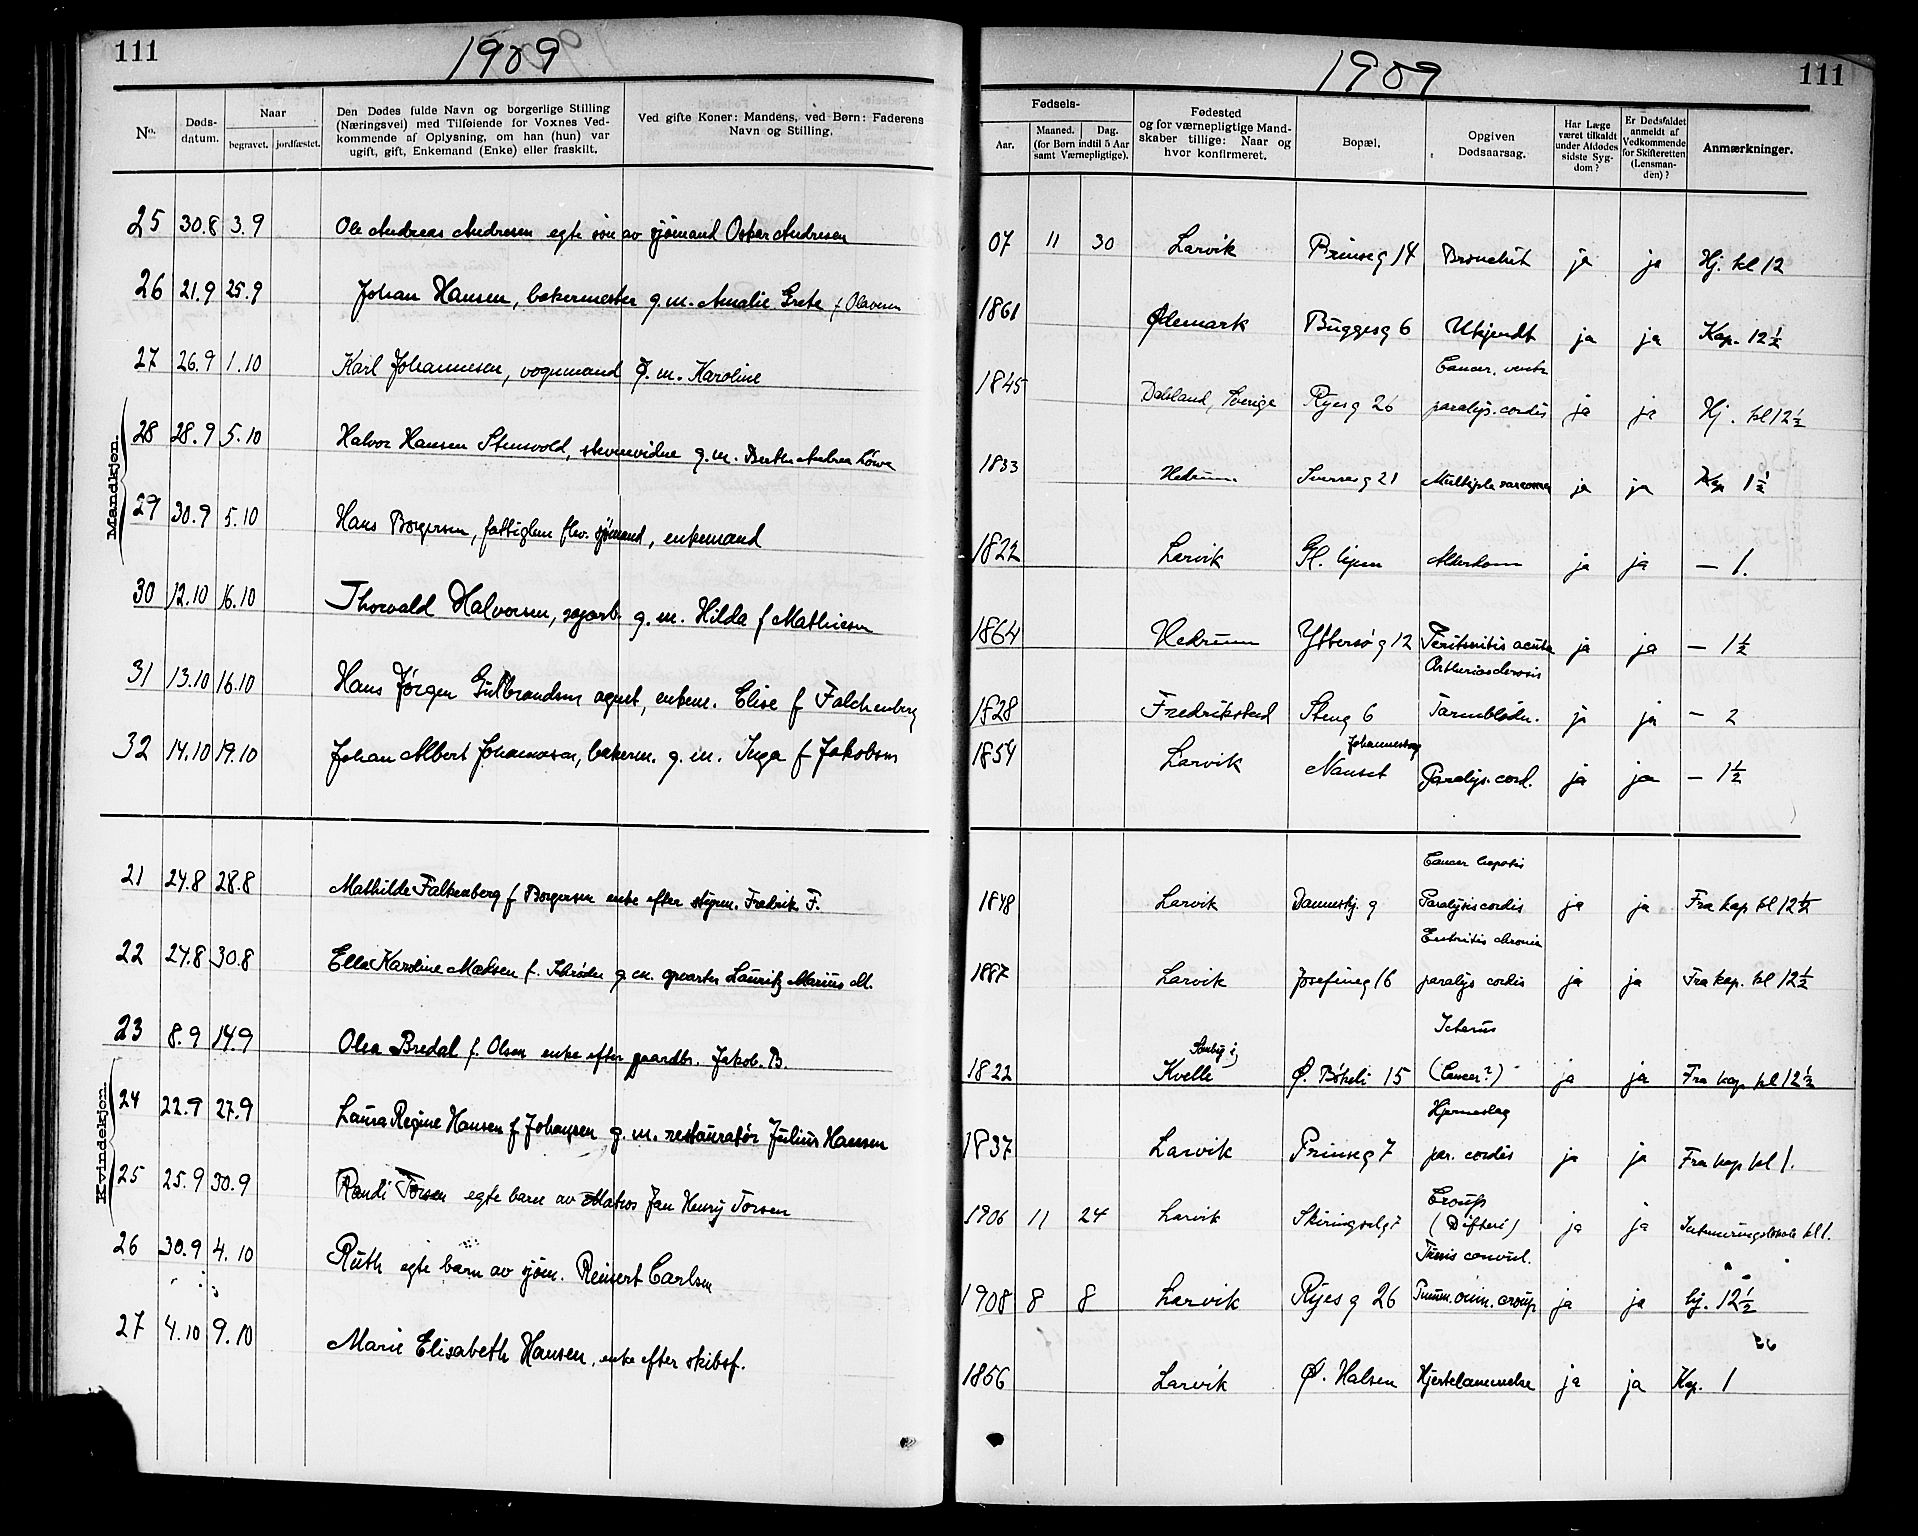 111
1909
No.
Døds-
datum.
Naar
begravet. jordfæstet.
Den Dødes fulde Navn og borgerlige Stilling
(Næringsvei) med Tilføiende for Voxnes Ved-
kommende af Oplysning, om han (hun) var
ugift, gift, Enkemand (Enke) eller fraskilt.
Ved gifte Koner: Mandens, ved Børn: Faderens
Navn og Stilling.
Mandkjøn.
25 30.8 3.9 Ole Andreas Andresen egte søn av sjømand Oskar Andresen
26 21.9 25.9 Johan Hansen, bakermester g.m. Amalie Grete f Olavesen
27 26.9 1.10 Karl Johannesen, vognmand g.m. Karoline
28 28.9 5.10 Halvor Hansen Stensvold, g.m. Berthe Andrea
29 30.9 5.10 Hans Borgersen, fattiglem fhv. sjømand, enkemand
30 12.10 16.10 Thorvald Halvorsen, g.m. Hilda f Mathiesen
31 13.10 16.10 Hans Jørgen Gulbrandsen agent, enkem. Elise f Falchenberg
32 14.10 19.10 Johan Albert Johannesen, bakerm. g.m. Inga f Jakobsen
Kvindekjøn.
21 24.8 28.8 Mathilde Falkenberg f Borgersen enke efter styrm. Fredrik F.
22 27.8 30.8 Ella Karoline Madsen f. Schrøder g m. Lauritz Marius M.
23 8.9 14.9 Olea Bredal f. Olsen enke efter gaardbr. Jakob B.
24 22.9 27.9 Laura Regine Hansen f Johansen g.m. restauratør Julius Hansen
25 25.9 30.9 Randi Torsen egte barn av Matros Jan Henry Torsen
26 30.9 4.10 Ruth egte barn av sjøm. Reinert Carlsen
27 4.10 9.10 Marie Elisabeth Hansen, enke efter skibsf.
1909
111
Fødsels-
Aar.
Maaned. Dag.
(for Børn indtil 5 Aar
samt Værnepligtige).
Fødested
og for værnepligtige Mand-
skaber tillige: Naar og
hvor konfirmeret.
Bopæl.
Opgiven
Dødsaarsag.
Har Læge
været tilkaldt
under Afdødes
sidste Syg-
dom?
Er Dødsfaldet
anmeldt af
Vedkommende
for Skifteretten
(Lensman-
den)?
Anmærkninger.
07 11 30 Larvik Prinseg 14 Bronchit ja ja Hj. kl 12
1861 Ødemark Buggesg 6 Ukjendt ja ja Kap. 12½
Cancer. ventr.
1845 Dalsland, Sverige Ryesg 26 paralys. cordis ja ja Hj. kl 12½
1833 Hedrum Sverresg 21 Multiple sarcomer ja ja Kap 1½
1822 Larvik Gl. hjem Alderdom ja ja — 1.
1864 Hedrum Yttersøg 12 Peritonitis acuta ja ja — 1½
Artheriosclerosis
1828 Fredrikstad Steng 6 Tarmblødn. ja ja — 2
1854 Larvik Nanset Paralys. cord. ja ja — 1½
Cancer hepatis
1848 Larvik Paralysis cordis ja ja Fra kap kl 12½
Enteritis chronic
1887 Larvik Josefineg 16 paralys cordis ja ja Fra kap. kl 12½
Icterus
1822 Kvelle Ø. Bøkeli 15 (Cancer?) ja ja Fra kap kl 12½
Hjerneslag
1837 Larvik Prinseg 7 par. cordis ja ja Fra kap kl 1.
Croup
1906 11 24 Larvik Skiringsalg 7 (Difteri) ja ja kl 1.
Tussis convul.
1908 8 8 Larvik Ryesg 26 croup ja ja hj. 12½
1856 Larvik Ø. Halsen Hjertelammelse ja ja Kap. 1